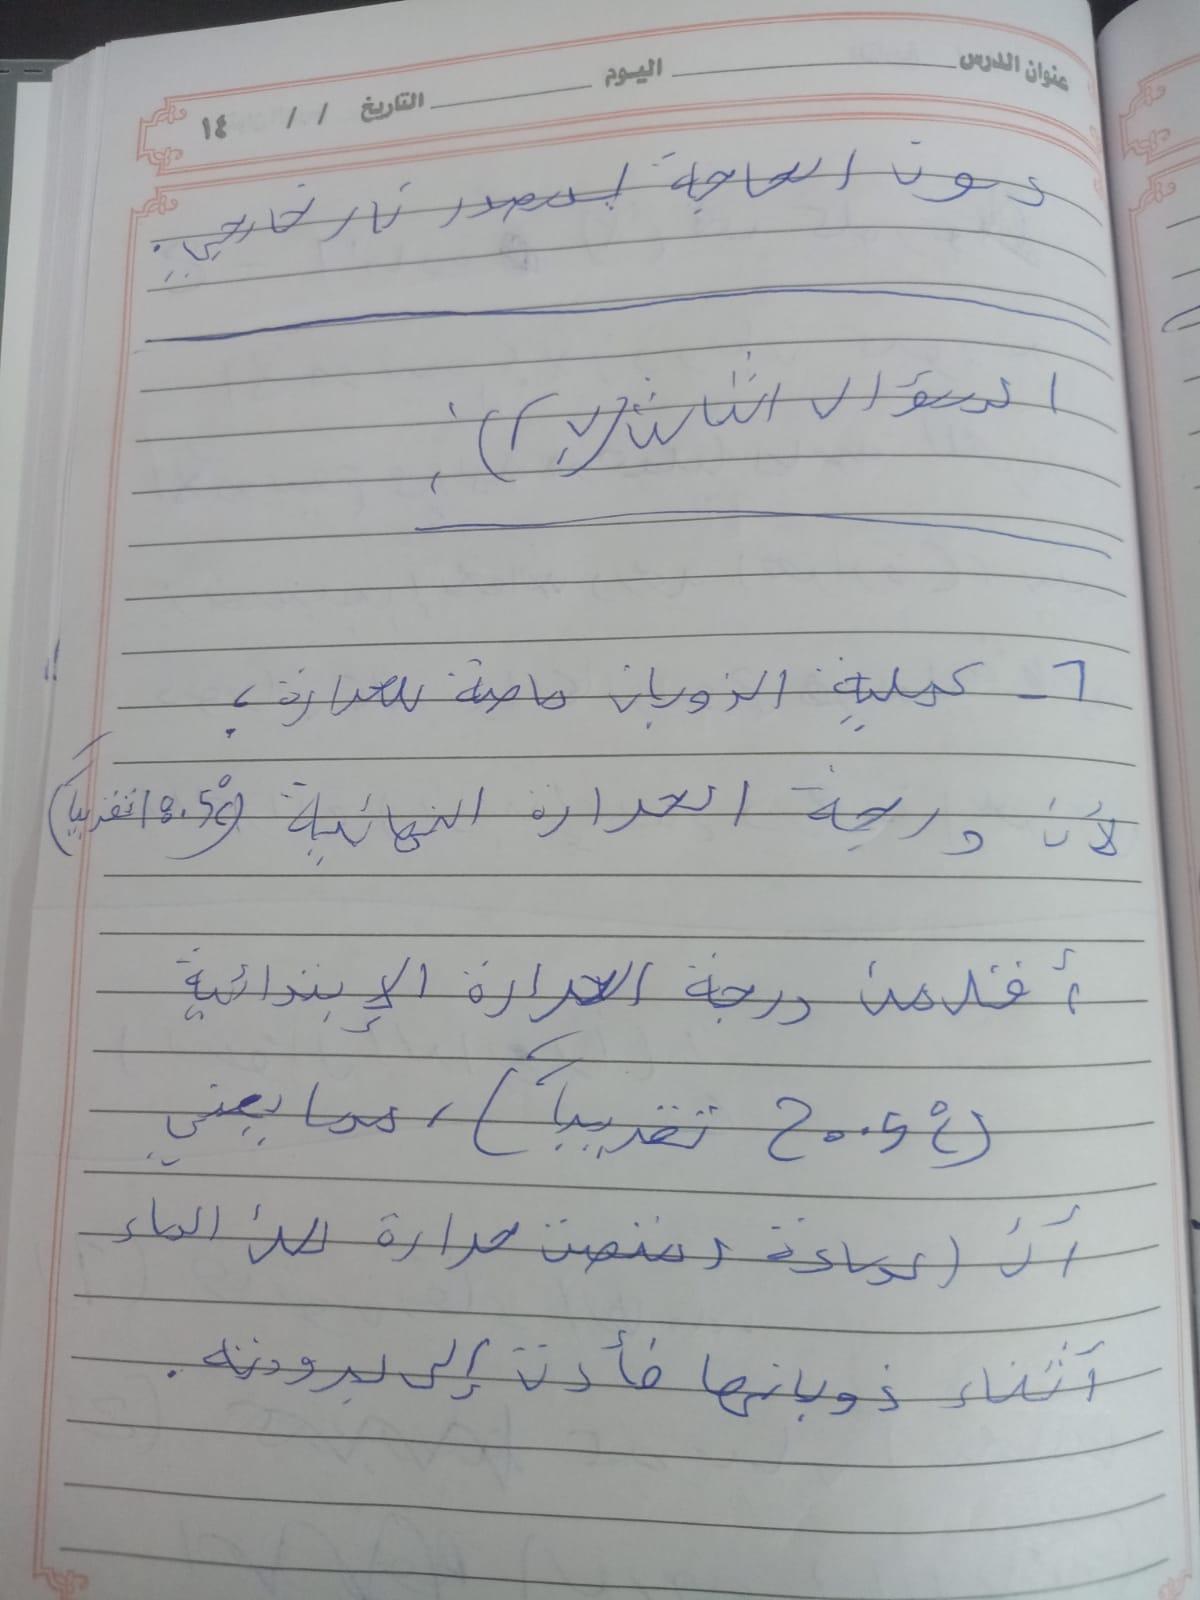 عنوان الدرس اليوم التاريخ / / ١٤
دون الحاجة لمصدر نار خارجي.
السؤال الثالث :
٦- عملية الذوبان ماصة للحرارة ،
لأن درجة الحرارة النهائية (18.5°C تقريباً)
أقل من درجة الحرارة الإبتدائية
(20.5°C تقريباً) ، مما يعني
أن المادة امتصت حرارة من الماء
أثناء ذوبانها فأدت إلى برودته .